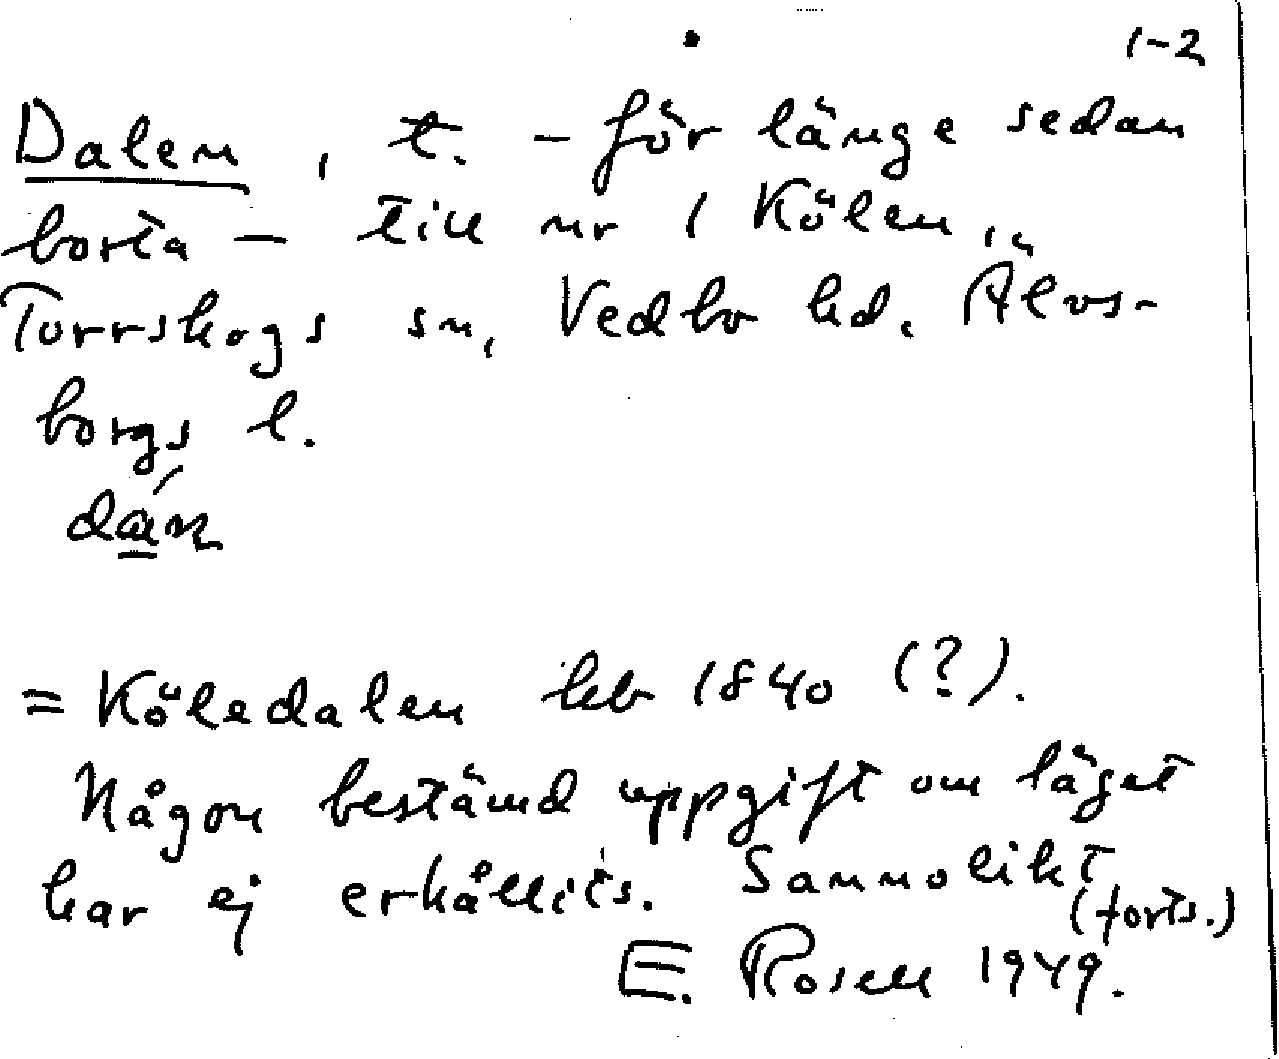 1-2
Dalen, t. – för länge sedan
borta – till nr 1 Kölen,
Torrskogs sn, Vedbo hd. Älvs-
borgs l.
= Köledalen hfb 1840 (?).
Någon bestämd uppgift om läget
har ej erhållits. Sannolikt
(forts.)
E. Rosell 1949.